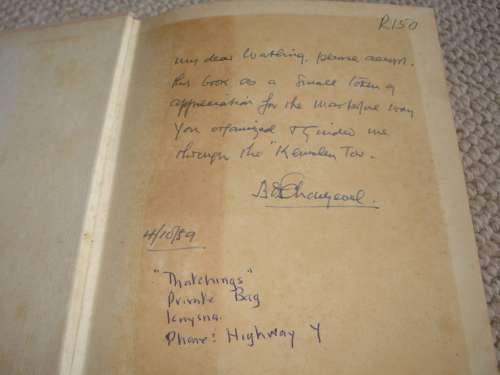 R150
My dear Watling, please accept
this book as a small token of
appreciation for the
you organized & guided me
through the "
4/10/59
"Thatchings"
Private Bag
Knysna.
Phone: Highway Y